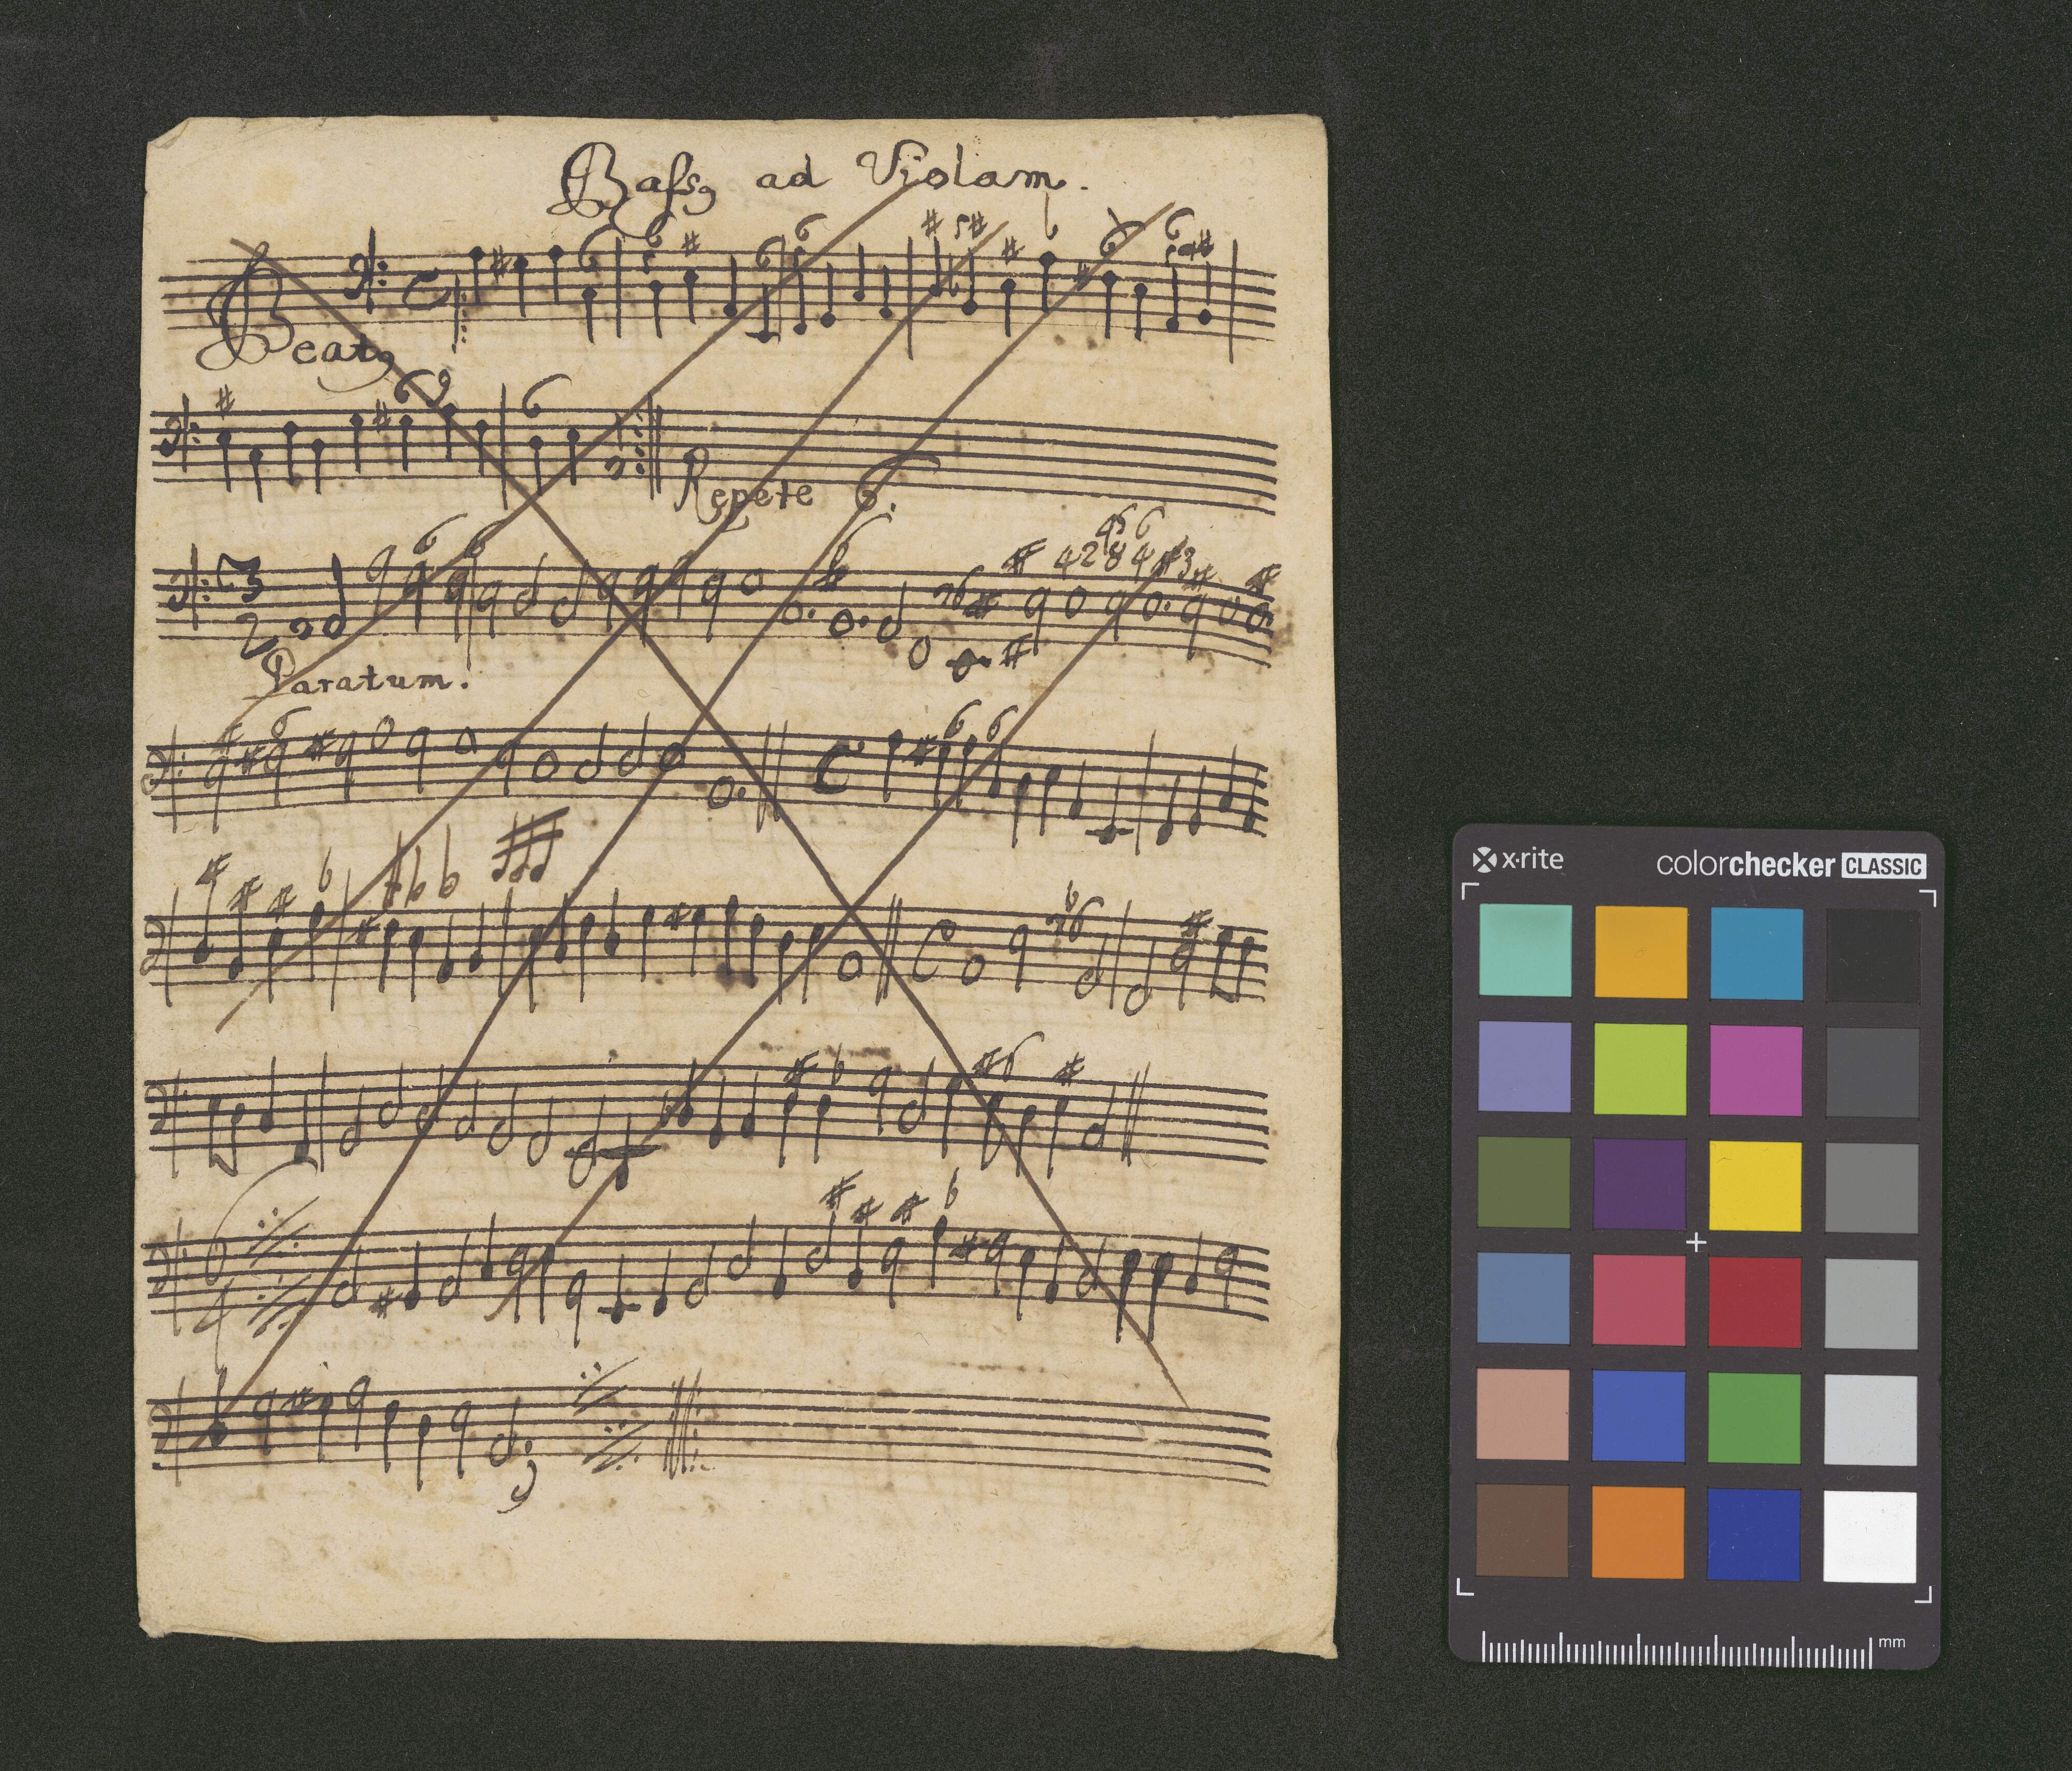 Bassꝰ ad Violam.
Beatꝰ
Repete 6.
Paratum.
x·rite
colorchecker CLASSIC
mm